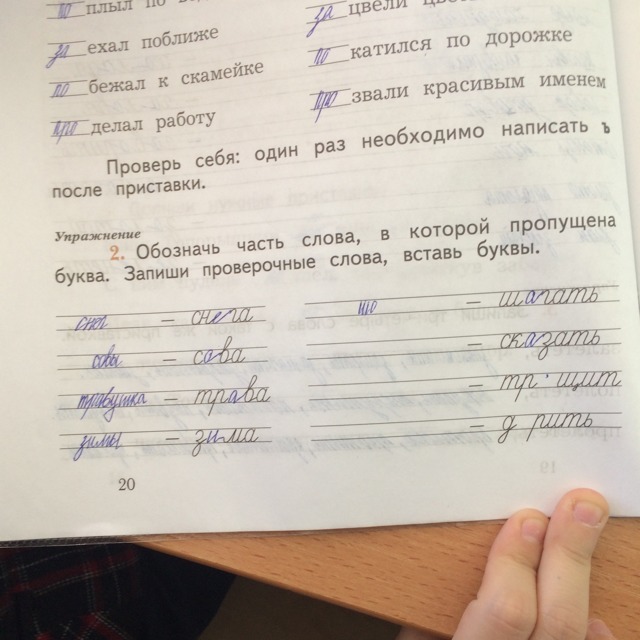 по плыл по
за цвели
за ехал поближе
по катился по дорожке
по бежал к скамейке
про звали красивым именем
про делал работу
Проверь себя: один раз необходимо написать ъ
после приставки.
Упражнение
2. Обозначь часть слова, в которой пропущена
буква. Запиши проверочные слова, вставь буквы.
снег – снега
шо – шагать
совы – сова
– сказать
травушка – трава
– тр щит
зимы – зима
– д рить
20
19